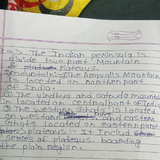 The Indian peninsula is
divide two part Mountain
plateaus.
Mountain: The Aravali Mountain
is located in northern part
of India.
The Vindhya and Satpuda mountain
is located in central part of India
The western Ghats is located
on western and eastern
Ghats is located on eastern
plateaus : It Includ
areas of plateaus boarding
the plain